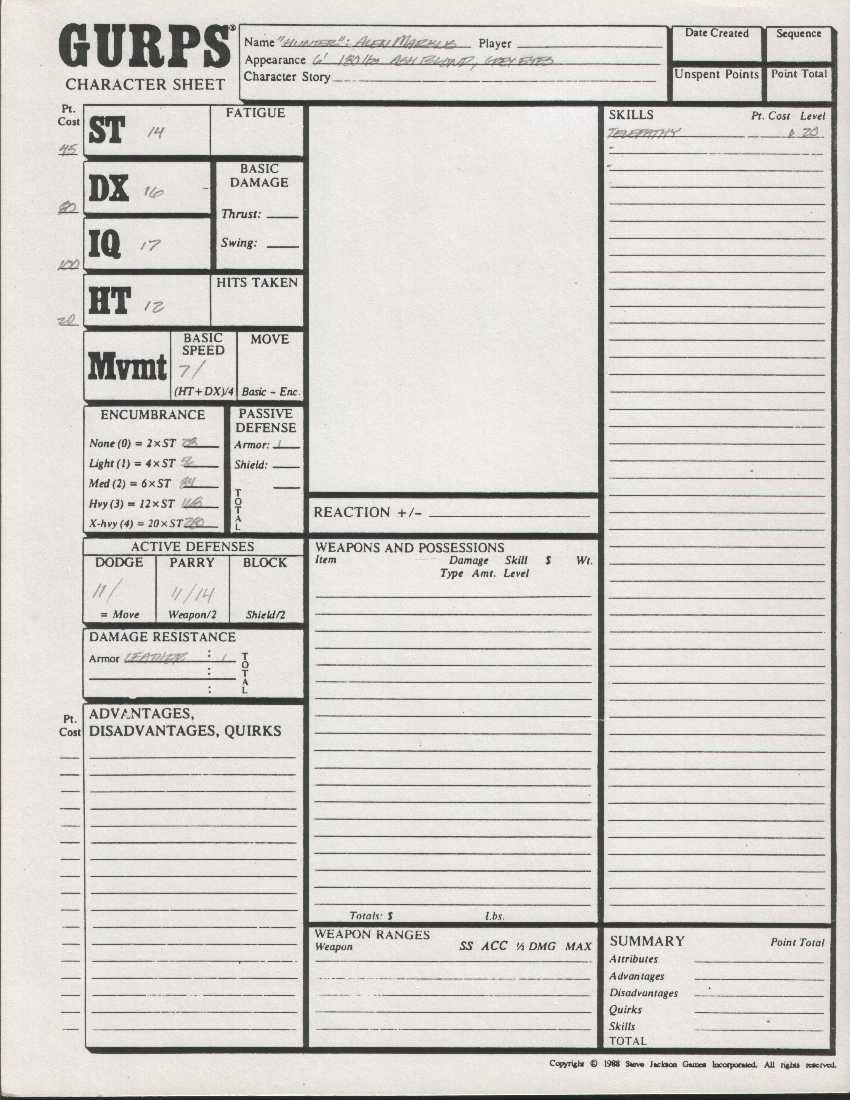 GURPS®
CHARACTER SHEET
Name "HUNTER": ALEN MARKUS Player
Appearance 6' 180 lbs ASH BLOND, GREY EYES
Character Story
Date Created
Sequence
Unspent Points
Point Total
Pt. Cost
45 ST 14
FATIGUE
80 DX 16
BASIC DAMAGE
Thrust:
Swing:
100 IQ 17
20 HT 12
HITS TAKEN
Mvmt
BASIC SPEED
7/
(HT+DX)/4
MOVE
Basic – Enc.
ENCUMBRANCE
None (0) = 2×ST 28
Light (1) = 4×ST 56
Med (2) = 6×ST 84
Hvy (3) = 12×ST 168
X-hvy (4) = 20×ST 280
PASSIVE DEFENSE
Armor: 1
Shield:
TOTAL
ACTIVE DEFENSES
DODGE PARRY BLOCK
11/ 11/14
= Move Weapon/2 Shield/2
DAMAGE RESISTANCE
Armor LEATHER : 1
:
:
TOTAL
Pt. Cost
ADVANTAGES,
DISADVANTAGES, QUIRKS
REACTION +/-
WEAPONS AND POSSESSIONS
Item Damage Skill $ Wt.
Type Amt. Level
Totals: $ Lbs.
WEAPON RANGES
Weapon SS ACC ½ DMG MAX
SKILLS Pt. Cost Level
TELEPATHY 20
SUMMARY Point Total
Attributes
Advantages
Disadvantages
Quirks
Skills
TOTAL
Copyright © 1988 Steve Jackson Games Incorporated. All rights reserved.